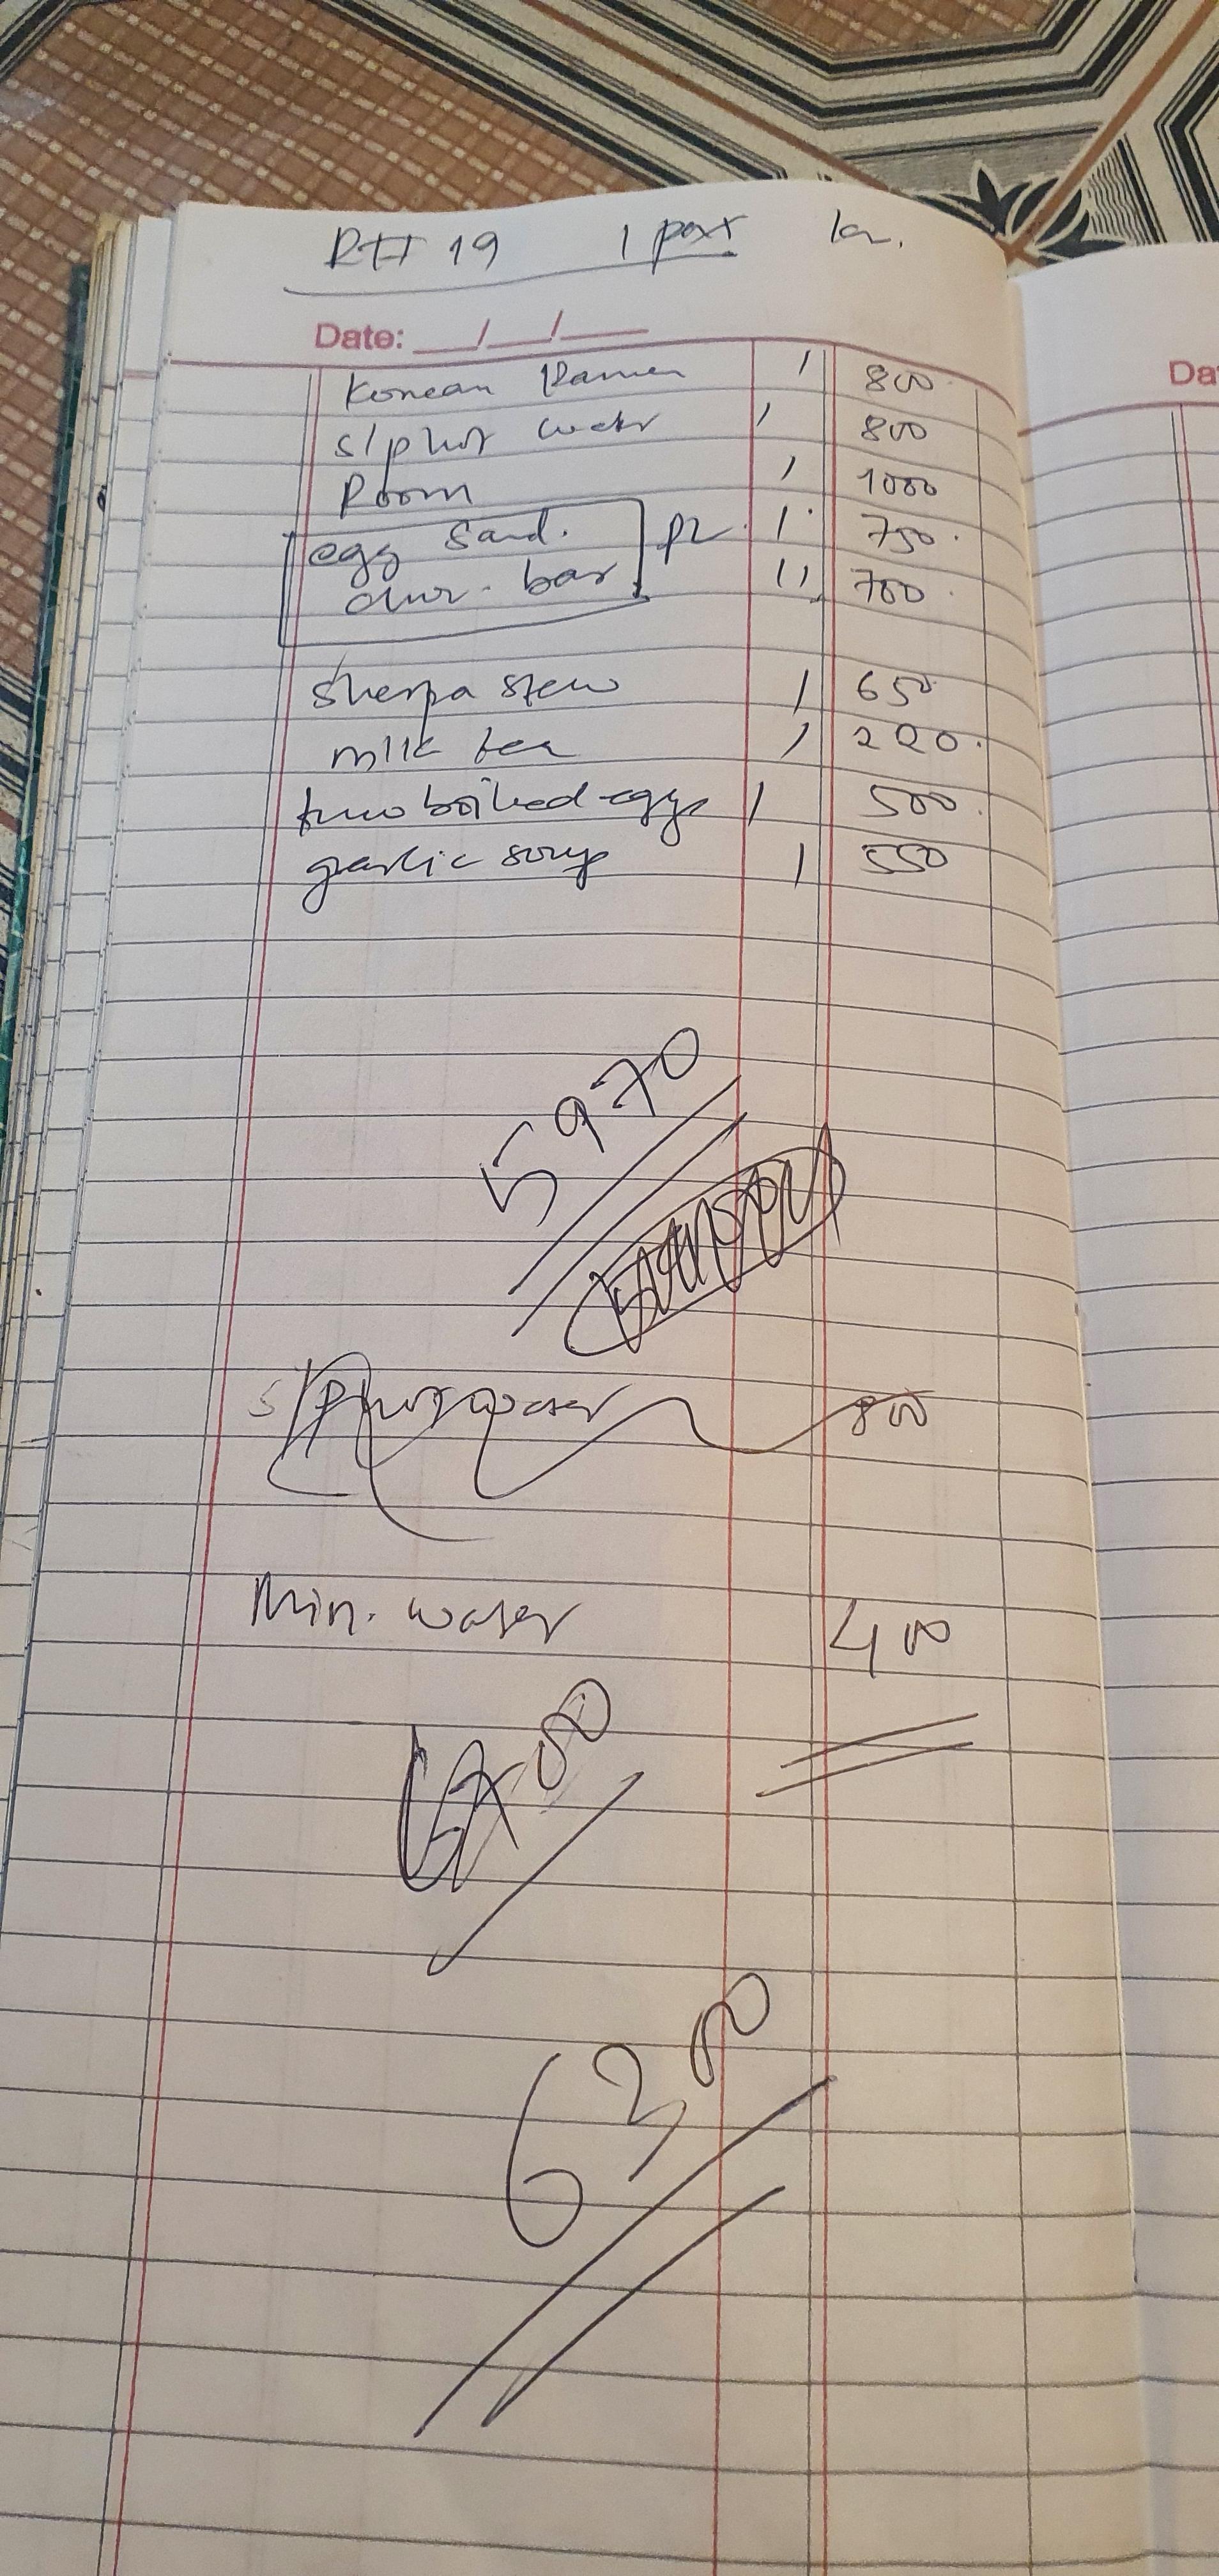 RH 19 1 port
Date: __/__/____
Korean Ramen 1 800
s/p hot water 1 800
Room 1 1000
egg Sand. 1 750
bar 11 700
sherpa stew 1 650
milk tea 1 220
two boiled eggs 1 500
garlic soup 1 550
5970
s/p hot water 800
Min. water 400
6300
Da